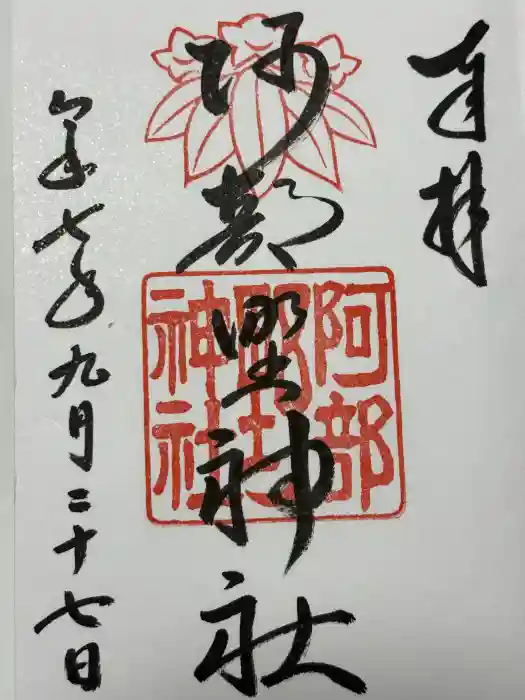 奉拝
阿部野神社
阿部
野神社
令和七年九月二十七日